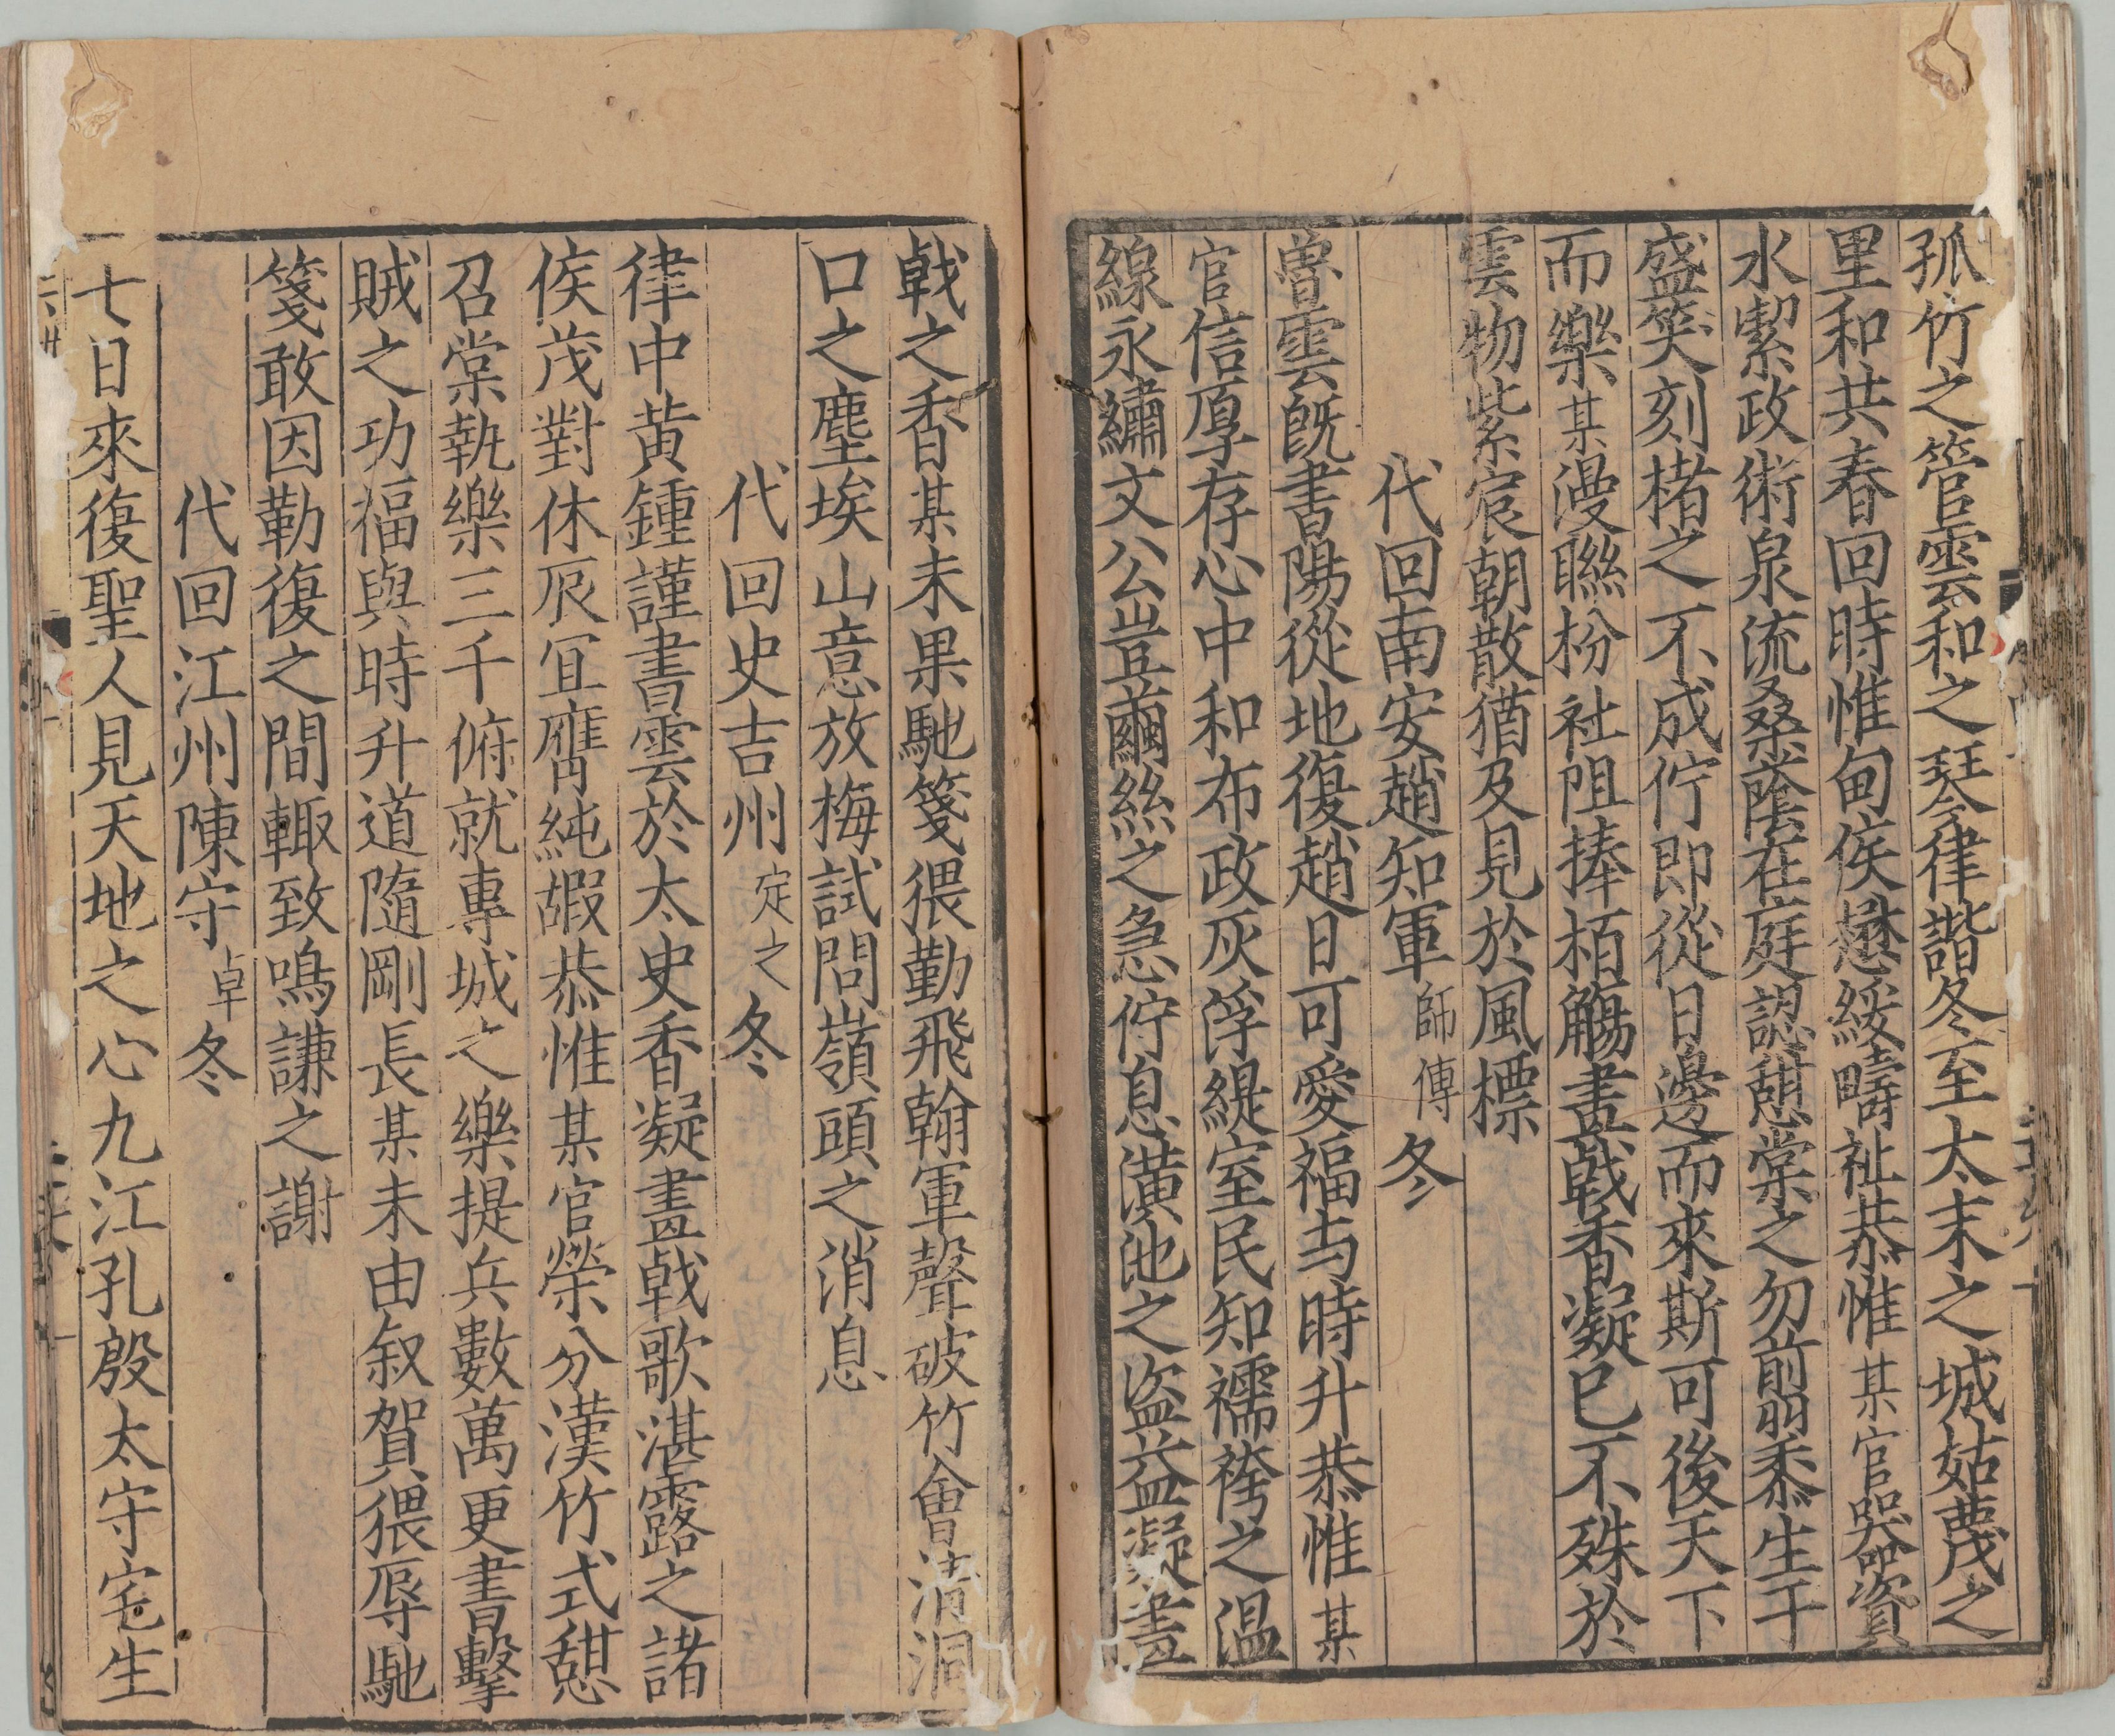 孤竹之管雲和之琴律諧冬至太末之城姑蔑之
里和共春回時惟甸侯懋綏疇祉恭惟某官器資
水潔政術泉流桑蔭在庭認憩棠之勿翦黍生于
盛笑刻楮之不成佇即從日邊而來斯可後天下
而樂某漫聯枌社阻捧栢觴畫戟香凝已不殊於
雲物紫宸朝散猶及見於風標
代回南安趙知軍師傳冬
魯雲旣書陽從地復趙日可愛福与時升恭惟某
官信厚存心中和布政灰浮緹室民知襦袴之溫
線永繡文公豈繭絲之急佇息潢池之盜益凝畫
戟之香某未果馳箋猥勤飛翰軍聲破竹會清洞
口之塵埃山意放梅試問嶺頭之消息
代回史吉州定之冬
律中黄鍾謹書雲於太史香凝畫戟歌湛露之諸
侯茂對休辰冝膺純嘏恭惟某官榮分漢竹式憩
召棠執樂三千俯就專城之樂提兵數萬更書擊
賊之功福與時升道隨剛長某未由叙賀猥辱馳
箋敢因勒復之間輙致鳴謙之謝
代回江州陳守卓冬
七日來復聖人見天地之心九江孔殷太守宅生